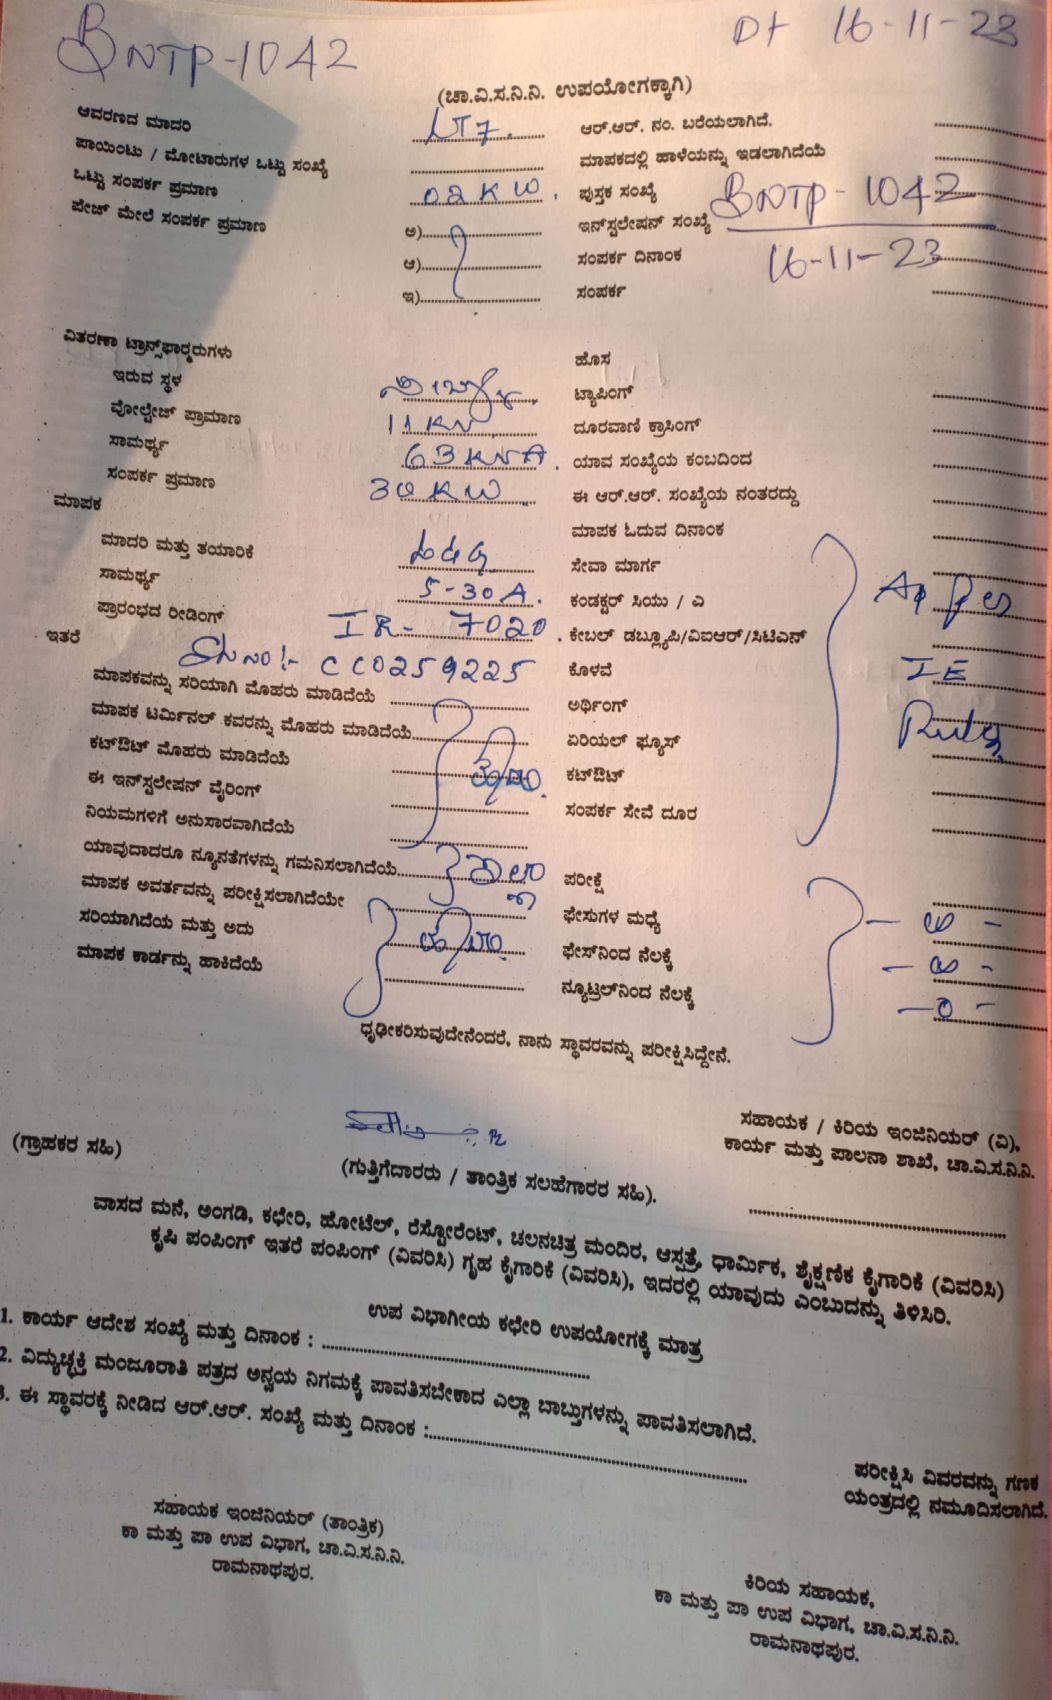 BNTP-1042
Dt 16-11-23
(ಚಾ.ವಿ.ಸ.ನಿ.ನಿ. ಉಪಯೋಗಕ್ಕಾಗಿ)
ಆವರಣದ ಮಾದರಿ LT7.
ಪಾಯಿಂಟು / ಮೋಟಾರುಗಳ ಒಟ್ಟು ಸಂಖ್ಯೆ
ಒಟ್ಟು ಸಂಪರ್ಕ ಪ್ರಮಾಣ 02 KW.
ಪೇಜ್ ಮೇಲೆ ಸಂಪರ್ಕ ಪ್ರಮಾಣ ಅ)
ಆ)
ಇ)
ಆರ್.ಆರ್. ನಂ. ಬರೆಯಲಾಗಿದೆ.
ಮಾಪಕದಲ್ಲಿ ಹಾಳೆಯನ್ನು ಇಡಲಾಗಿದೆಯೆ
ಪುಸ್ತಕ ಸಂಖ್ಯೆ
ಇನ್‌ಸ್ಟಲೇಷನ್ ಸಂಖ್ಯೆ BNTP-1042
ಸಂಪರ್ಕ ದಿನಾಂಕ 16-11-23
ಸಂಪರ್ಕ
ವಿತರಣಾ ಟ್ರಾನ್ಸ್‌ಫಾರ್ಮರುಗಳು
ಇರುವ ಸ್ಥಳ
ವೋಲ್ಟೇಜ್ ಪ್ರಾಮಾಣ 11 KV
ಸಾಮರ್ಥ್ಯ 63 KVA.
ಸಂಪರ್ಕ ಪ್ರಮಾಣ 30 KW
ಮಾಪಕ
ಮಾದರಿ ಮತ್ತು ತಯಾರಿಕೆ L&G.
ಸಾಮರ್ಥ್ಯ 5-30A.
ಪ್ರಾರಂಭದ ರೀಡಿಂಗ್ IR- 7020.
ಇತರೆ Sl No:- CC0259225
ಮಾಪಕವನ್ನು ಸರಿಯಾಗಿ ಮೊಹರು ಮಾಡಿದೆಯೆ
ಮಾಪಕ ಟರ್ಮಿನಲ್ ಕವರನ್ನು ಮೊಹರು ಮಾಡಿದೆಯೆ
ಕಟ್‌ಔಟ್ ಮೊಹರು ಮಾಡಿದೆಯೆ
ಈ ಇನ್‌ಸ್ಟಲೇಷನ್ ವೈರಿಂಗ್
ನಿಯಮಗಳಿಗೆ ಅನುಸಾರವಾಗಿದೆಯೆ
ಯಾವುದಾದರೂ ನ್ಯೂನತೆಗಳನ್ನು ಗಮನಿಸಲಾಗಿದೆಯೆ
ಮಾಪಕ ಅವರ್ತವನ್ನು ಪರೀಕ್ಷಿಸಲಾಗಿದೆಯೇ
ಸರಿಯಾಗಿದೆಯ ಮತ್ತು ಅದು
ಮಾಪಕ ಕಾರ್ಡನ್ನು ಹಾಕಿದೆಯೆ
ಹೊಸ
ಟ್ಯಾಪಿಂಗ್
ದೂರವಾಣಿ ಕ್ರಾಸಿಂಗ್
ಯಾವ ಸಂಖ್ಯೆಯ ಕಂಬದಿಂದ
ಈ ಆರ್.ಆರ್. ಸಂಖ್ಯೆಯ ನಂತರದ್ದು
ಮಾಪಕ ಓದುವ ದಿನಾಂಕ
ಸೇವಾ ಮಾರ್ಗ
ಕಂಡಕ್ಟರ್ ಸಿಯು / ಎ As per
ಕೇಬಲ್ ಡಬ್ಲ್ಯೂಪಿ/ವಿಐಆರ್/ಸಿಟಿಎನ್
ಕೊಳವೆ IE
ಅರ್ಥಿಂಗ್ Rules
ಏರಿಯಲ್ ಫ್ಯೂಸ್
ಕಟ್‌ಔಟ್
ಸಂಪರ್ಕ ಸೇವೆ ದೂರ
ಪರೀಕ್ಷೆ
ಫೇಸುಗಳ ಮಧ್ಯೆ
ಫೇಸ್‌ನಿಂದ ನೆಲಕ್ಕೆ
ನ್ಯೂಟ್ರಲ್‌ನಿಂದ ನೆಲಕ್ಕೆ
ಧೃಢೀಕರಿಸುವುದೇನೆಂದರೆ, ನಾನು ಸ್ಥಾವರವನ್ನು ಪರೀಕ್ಷಿಸಿದ್ದೇನೆ.
(ಗ್ರಾಹಕರ ಸಹಿ)
(ಗುತ್ತಿಗೆದಾರರು / ತಾಂತ್ರಿಕ ಸಲಹೆಗಾರರ ಸಹಿ).
ಸಹಾಯಕ / ಕಿರಿಯ ಇಂಜಿನಿಯರ್ (ವಿ),
ಕಾರ್ಯ ಮತ್ತು ಪಾಲನಾ ಶಾಖೆ, ಚಾ.ವಿ.ಸ.ನಿ.ನಿ.
ವಾಸದ ಮನೆ, ಅಂಗಡಿ, ಕಛೇರಿ, ಹೋಟೆಲ್, ರೆಸ್ಟೋರೆಂಟ್, ಚಲನಚಿತ್ರ ಮಂದಿರ, ಆಸ್ಪತ್ರೆ, ಧಾರ್ಮಿಕ, ಶೈಕ್ಷಣಿಕ ಕೈಗಾರಿಕೆ (ವಿವರಿಸಿ)
ಕೃಷಿ ಪಂಪಿಂಗ್ ಇತರೆ ಪಂಪಿಂಗ್ (ವಿವರಿಸಿ) ಗೃಹ ಕೈಗಾರಿಕೆ (ವಿವರಿಸಿ), ಇದರಲ್ಲಿ ಯಾವುದು ಎಂಬುದನ್ನು ತಿಳಿಸಿರಿ.
ಉಪ ವಿಭಾಗೀಯ ಕಛೇರಿ ಉಪಯೋಗಕ್ಕೆ ಮಾತ್ರ
1. ಕಾರ್ಯ ಆದೇಶ ಸಂಖ್ಯೆ ಮತ್ತು ದಿನಾಂಕ :
2. ವಿದ್ಯುಚ್ಛಕ್ತಿ ಮಂಜೂರಾತಿ ಪತ್ರದ ಅನ್ವಯ ನಿಗಮಕ್ಕೆ ಪಾವತಿಸಬೇಕಾದ ಎಲ್ಲಾ ಬಾಬ್ತುಗಳನ್ನು ಪಾವತಿಸಲಾಗಿದೆ.
3. ಈ ಸ್ಥಾವರಕ್ಕೆ ನೀಡಿದ ಆರ್.ಆರ್. ಸಂಖ್ಯೆ ಮತ್ತು ದಿನಾಂಕ :
ಪರೀಕ್ಷಿಸಿ ವಿವರವನ್ನು ಗಣಕ
ಯಂತ್ರದಲ್ಲಿ ನಮೂದಿಸಲಾಗಿದೆ.
ಸಹಾಯಕ ಇಂಜಿನಿಯರ್ (ತಾಂತ್ರಿಕ)
ಕಾ ಮತ್ತು ಪಾ ಉಪ ವಿಭಾಗ, ಚಾ.ವಿ.ಸ.ನಿ.ನಿ.
ರಾಮನಾಥಪುರ.
ಕಿರಿಯ ಸಹಾಯಕ,
ಕಾ ಮತ್ತು ಪಾ ಉಪ ವಿಭಾಗ, ಚಾ.ವಿ.ಸ.ನಿ.ನಿ.
ರಾಮನಾಥಪುರ.